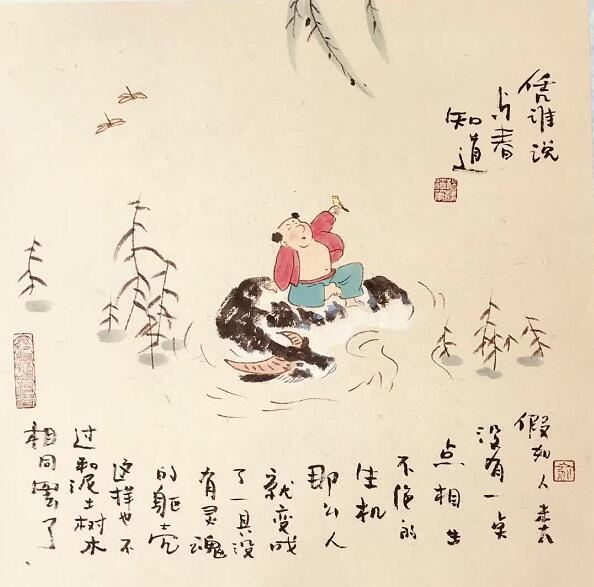 凭谁说
与春
知道
假如人
没有一点
点相生
不绝的
生机
那么人
就变成
了一具没
有灵魂
的躯壳
这样也不
过和泥土树木
相同罢了、